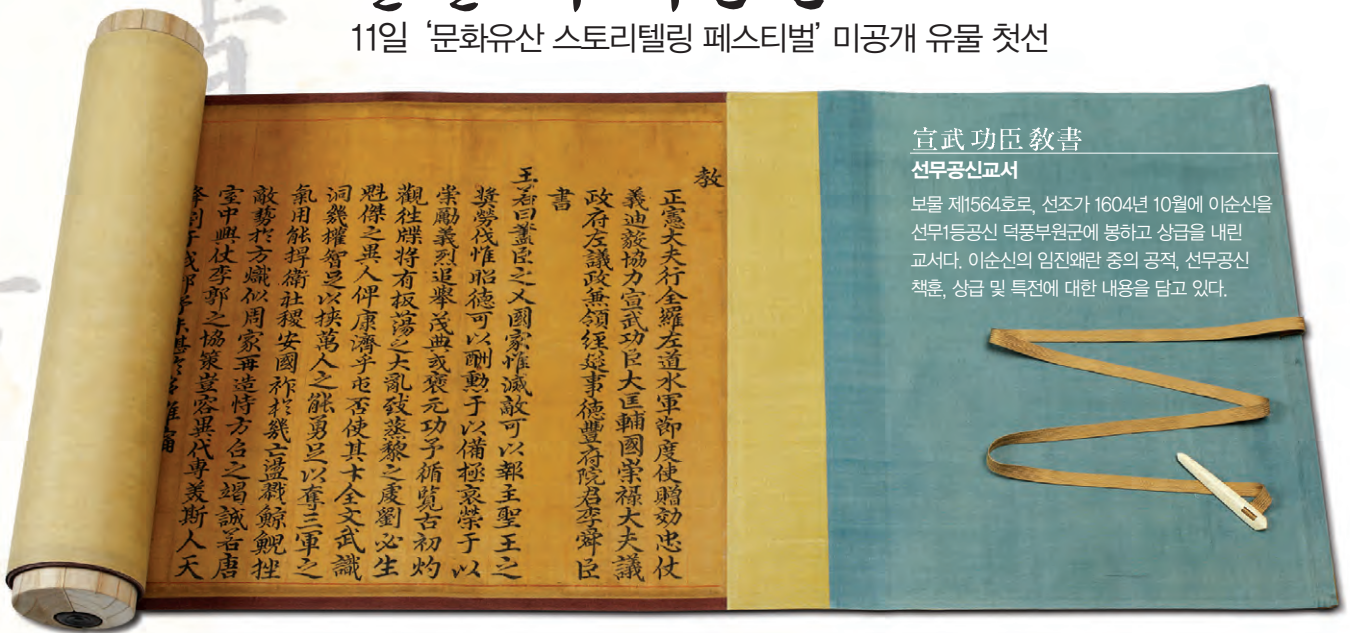 11일 ‘문화유산 스토리텔링 페스티벌’ 미공개 유물 첫선
宣武功臣敎書
선무공신교서
보물 제1564호로, 선조가 1604년 10월에 이순신을
선무1등공신 덕풍부원군에 봉하고 상급을 내린
교서다. 이순신의 임진왜란 중의 공적, 선무공신
책훈, 상급 및 특전에 대한 내용을 담고 있다.
教
正憲大夫行全羅左道水軍節度使贈効忠仗
義迪毅協力宣武功臣大匡輔國崇祿大夫議
政府左議政兼領經筵事德豐府院君李舜臣
書
王若曰蓋臣之乂國家惟滅敵可以報主聖王之
奬榮伐惟昭德可以酬勲于以備極哀榮于以
崇勵義烈追舉茂典或褒元功予循覧古初灼
觀徃牒將有板蕩之大亂致蒸黎之虔劉必生
魁傑之異人俾康濟乎屯否使其才全文武識
洞幾權智足以挾萬人之能勇足以奪三軍之
氣用能捍衛社稷安國祚於幾亡盪戮鯨鯢挫
敵勢於方熾似周家再造恃方召之竭誠若唐
室中興仗李郭之協策豈容異代專美斯人天